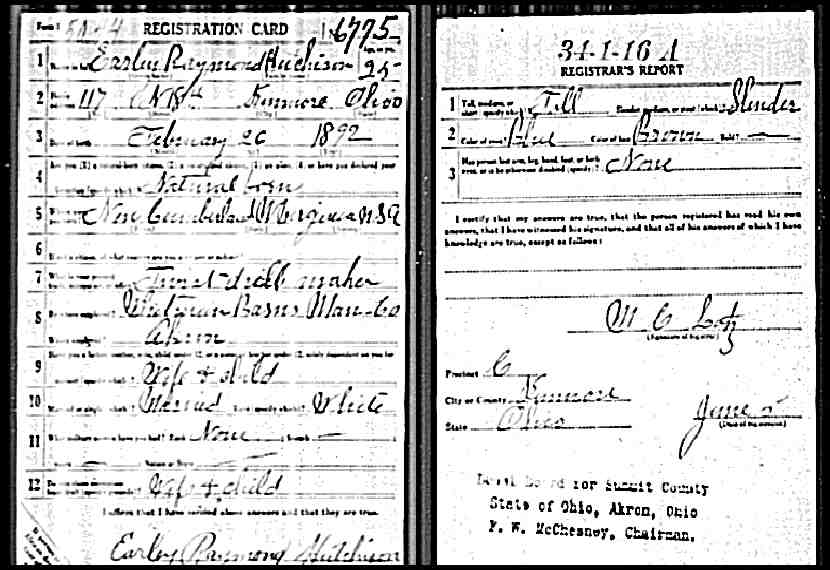 Form 1 REGISTRATION CARD No. 6775
1 Earley Raymond Hutchison 25
2 117 Kenmore Ohio
3 Date of birth February 20 1892
4 Are you (1) a natural-born citizen, (2) a naturalized citizen, (3) an alien, (4) or have you declared your
Natural born
5 New Cumberland W Virginia USA
6
7 Twist drill maker
8 By whom employed? Whitman Barns Man. Co
Where employed? Akron
9 Have you a father, mother, wife, child under 12, or a sister or brother under 12, solely dependent on you for
Wife & child
10 Married or single (which)? Married Race (specify which)? White
11 What military service have you had? Rank None
12 Wife & child
I affirm that I have verified above answers and that they are true.
Earley Raymond Hutchison
34-1-16 A
REGISTRAR'S REPORT
1 Tall, medium, or short (specify which)? Tall Slender, medium, or stout (which)? Slender
2 Color of eyes? Blue Color of hair? Brown Bald? —
3 Has person lost arm, leg, hand, foot, or both eyes, or is he otherwise disabled (specify)? None
I certify that my answers are true, that the person registered has read his own
answers, that I have witnessed his signature, and that all of his answers of which I have
knowledge are true, except as follows:
M C Lotz
(Signature of registrar)
Precinct C
City or County Kenmore
State Ohio
June 5
(Date of registration)
Local Board for Summit County
State of Ohio, Akron, Ohio
F. W. McChesney, Chairman.